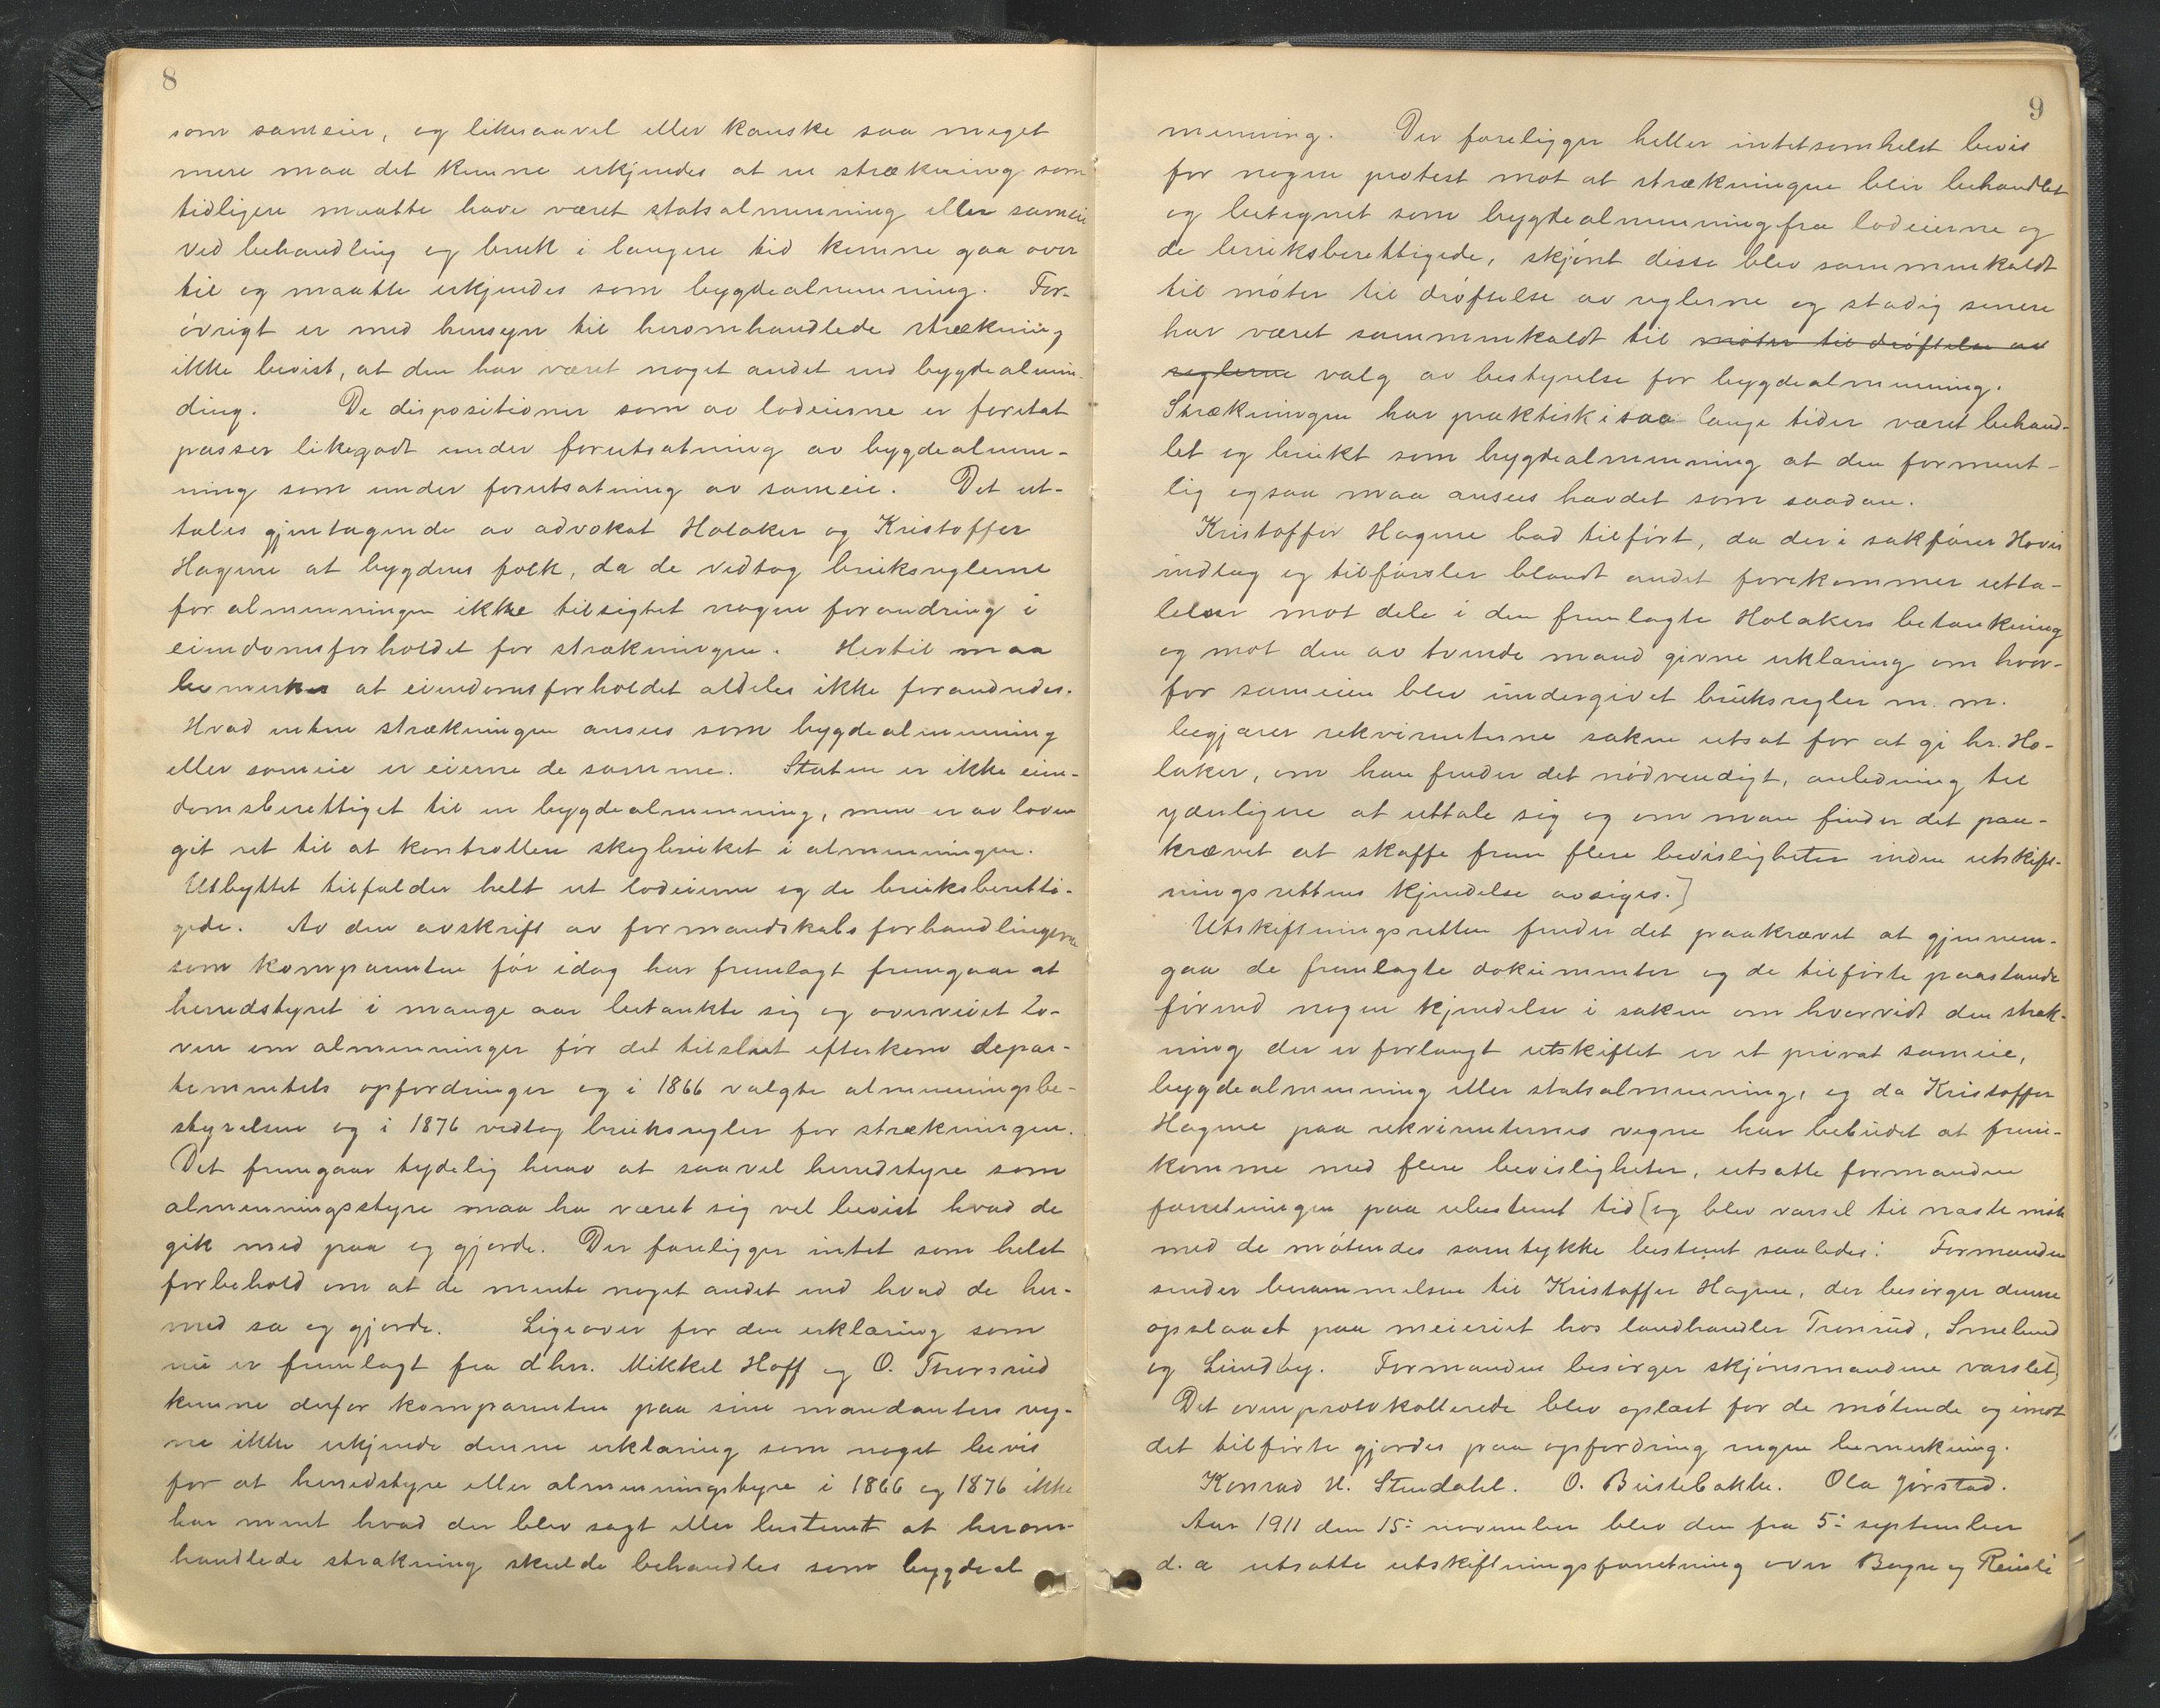 8
som sameier, og likesaavel eller kanske saa meget
mere maa det kunne erkjendes at en strækning som
tidligere maatte have været statsalmenning eller sameie
ved behandling og bruk i længere tid kunne gaa over
til og maatte erkjendes som bygdealmenning. For-
övrigt er med hensyn til heromhandlede strækning
ikke bevist, at den har været noget andet end bygdealmin-
ding. De dispositioner som av lodeierne er foretat
passer likegodt under forutsætning av bygdealmen-
ning som under forutsætning av sameie. Det ut-
tales gjentagende av advokat Holaker og Kristoffer
Hagene at bygdens folk, da de vedtog bruksreglerne
for almenningen ikke tilsigtet nogen forandring i
eiendomsforholdet for strækningen. Hertil maa
bemerkes at eiendomsforholdet aldeles ikke forandredes.
Hvad enten strækningen ansees som bygdealmenning
eller sameie er eierne de samme. Staten er ikke eien-
domsberettiget til en bygdealmenning, men er av loven
git ret til at kontrollere skogbruket i almenningen.
Utbyttet tilfalder helt ut lodeierne og de bruksberetti-
gede. Av den avskrift av formandskabsforhandlingerne
som komparenten før idag har fremlagt fremgaar at
herredstyret i mange aar betænkte sig og overveiet lo-
ven om almenninger før det tilslut efterkom depar-
tementets opfordringer og i 1866 valgte almenningsbe-
styrelsen og i 1876 vedtog bruksregler for strækningen.
Det fremgaar tydelig herav at saavel herredstyre som
almenningsstyre maa ha været sig vel bevist hvad de
gik med paa og gjorde. Der foreligger intet som helst
forbehold om at de mente noget andet end hvad de her-
med sa og gjorde. Ligeover for den erklæring som
nu er fremlagt fra dhrr. Mikkel Hoff og O. Thorsrud
kunne derfor komparenten paa sine mandanters veg-
ne ikke erkjende denne erklæring som noget bevis
for at herredstyre eller almenningstyre i 1866 og 1876 ikke
har ment hvad der blev sagt eller bestemt at herom-
handlede strækning skulde behandles som bygdeal
9
menning. Der foreligger heller intetsomhelst bevis
for nogen protest mot at strækningen blir behandlet
og betegnet som bygdealmenning fra lodeierne og
de bruksberettigede, skjönt disse blev sammenkaldt
til möter til dröftelse av reglerne og stadig senere
har været sammenkaldt til möter til dröftelse av
reglerne valg av bestyrelse for bygdealmenning.
Strækningen har praktisk i saa lange tider været behand-
let og brukt som bygdealmenning at den forment-
lig ogsaa maa ansees hævdet som saadan.
Kristoffer Hagene bad tilført, da der i sakfører Hovis
indlæg og tilførsler blandt andet forekommer utta-
lelser mot dele i den fremlagte Holakers betænkning
og mot den av tvende mænd givne erklæring om hvor-
for sameien blev undergivet bruksregler m. m.
begjærer rekvirenterne saken utsat for at gi hr. Ho-
laker, om han finder det nödvendigt, anledning til
yderligere at uttale sig og om man finder det paa-
krævet at skaffe frem flere bevisligheter inden utskift-
ningsrettens kjendelse avsiges.]
Utskiftningsretten finder det paakrævet at gjennem-
gaa de fremlagte dokumenter og de tilførte paastande
førend nogen kjendelse i saken om hvorvidt den stræk-
ning der er forlangt utskiftet er et privat sameie,
bygdealmenning eller statsalmenning, og da Kristoffer
Hagene paa rekvirenternes vegne har bebudet at frem-
komme med flere bevisligheter, utsatte formanden
forretningen paa ubestemt tid [og blev varsel til næste möte
med de mötendes samtykke bestemt saaledes: Formanden
sender berammelsen til Kristoffer Hagene, der besørger denne
opslaaet paa meieriet hos landhandler Tronrud, Smelund
og Lundby. Formanden besörger skjönsmændene varslet]
Det ovenprotokollerede blev oplæst for de mötende og imot
det tilførte gjordes paa opfordring ingen bemerkning.
Konrad H. Stendahl. O. Bustebakke. Ola Jørstad.
Aar 1911 den 15: november blev den fra 5: september
d. a utsatte utskiftningsforretning over Berge og Reinsli